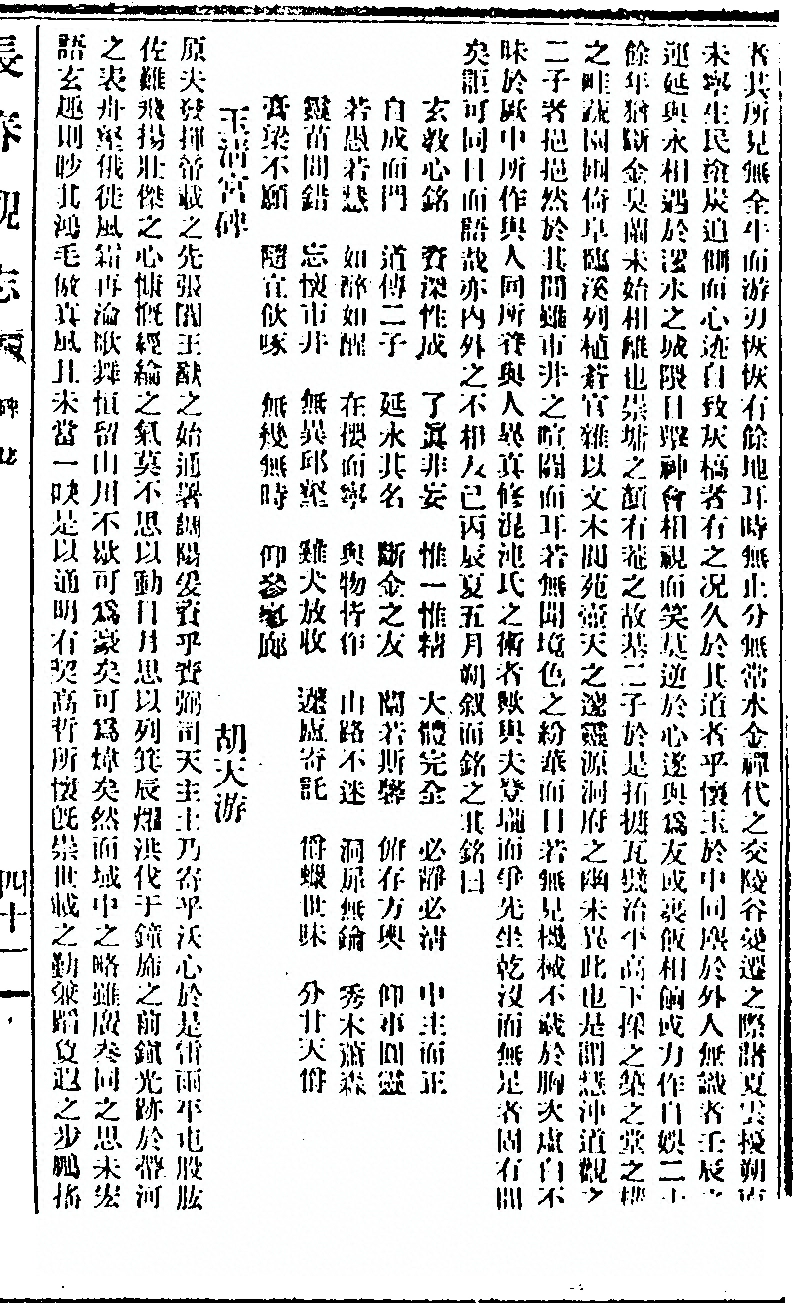 者其所見無全牛而游刃恢恢有餘地耳時無止分無常水金禪代之交陵谷變遷之際諸夏雲擾朔
未寧生民塗炭迫側而心迹自致灰槁者有之况久於其道者乎懷玉於中同塵於外人無識者壬辰
運延與永相遇於澤水之城隈目擊神會相視而笑莫逆於心遂與爲友或裹飯相餉或力作自娛二十
餘年猶斷金臭蘭未始相離也崇墉之顏有菴之故基二子於是拓挺瓦礫治平高下採之築之堂之樓
之畦蔬園圃倚阜臨溪列植蒼官雜以文木閬苑壺天之邃靈源洞府之幽未異此也是謂慧沖道觀之
二子者挹挹然於其間雖市井之喧闐而耳若無聞境色之紛華而目若無見機械不藏於胸次虛白不
昧於厥中所作與人同所養與人異真修混沌氏之術者歟與夫登壠而爭先坐乾沒而無足者固有間
矣詎可同日而語哉亦內外之不相及已丙辰夏五月朔叙而銘之其銘曰
玄教心銘 資深性成 了眞非妄 惟一惟精 大體完全 必靜必清 中主而正
自成而門 道傳二子 延永其名 斷金之友 蘭若斯馨 俯存方輿 仰事圓靈
若愚若慧 如醉如醒 在攖而寧 與物皆作 山路不迷 洞扉無鑰 秀木蕭森
靈苗間錯 忘懷市井 無異邱壑 雞犬放收 蘧廬寄託 爵蠟世味 分甘天爵
膏粱不願 隨宜飲啄 無幾無時 仰參寥廓
玉清宮碑 胡天游
原夫發揮常載之先張闓王猷之始通署調陽爰資乎資弼司天主土乃寄乎沃心於是雷雨平屯股肱
佐難飛揚壯傑之心慷慨經綸之氣莫不思以動日月思以列箕辰燿洪伐于鐘旆之前鎮光跡於帶河
之表舟壑俄徙風霜再淪歌舞恒留山川不歇可爲豪矣可爲煒矣然而域中之略雖殷叁同之思未宏
語玄趣則眇北鴻毛倣真風且未當一吷是以通明有契高哲所懷旣崇世載之勤彌蹈負遐之步鵬搖
長春觀志 碑 四十一